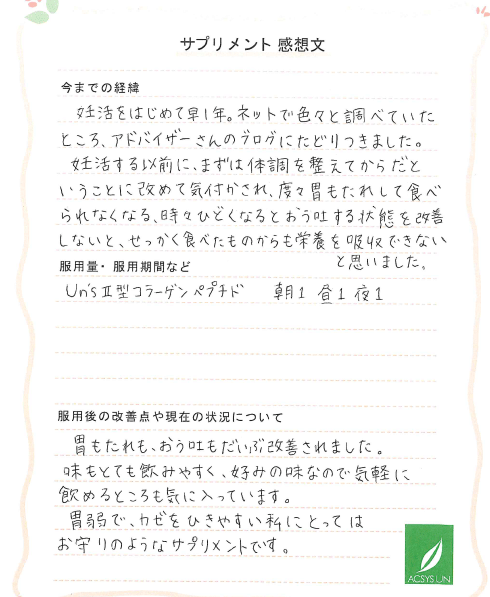 サプリメント 感想文
今までの経緯
妊活をはじめて早1年。ネットで色々と調べていた
ところ、アドバイザーさんのブログにたどりつきました。
妊活する以前に、まずは体調を整えてからだと
いうことに改めて気付かされ、度々胃もたれして食べ
られなくなる、時々ひどくなるとおう吐する状態を改善
しないと、せっかく食べたものからも栄養を吸収できない
と思いました。
服用量・服用期間など
Un'sⅡ型コラーゲンペプチド 朝1 昼1 夜1
服用後の改善点や現在の状況について
胃もたれも、おう吐もだいぶ改善されました。
味もとても飲みやすく、好みの味なので気軽に
飲めるところも気に入っています。
胃弱で、カゼをひきやすい私にとっては
お守りのようなサプリメントです。
ACSYS UN